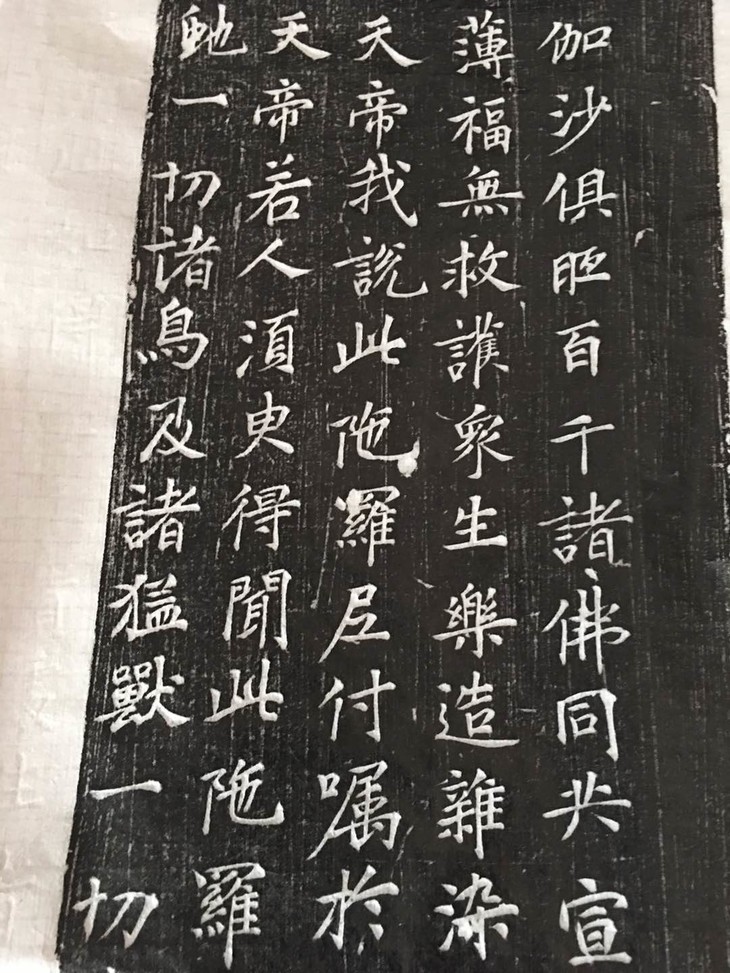 伽沙俱胝百千諸佛同共宣
薄福無救護衆生樂造雜染
天帝我說此陁羅尼付嘱於
天帝若人須臾得聞此陁羅
虵一切諸鳥及諸猛獸一切